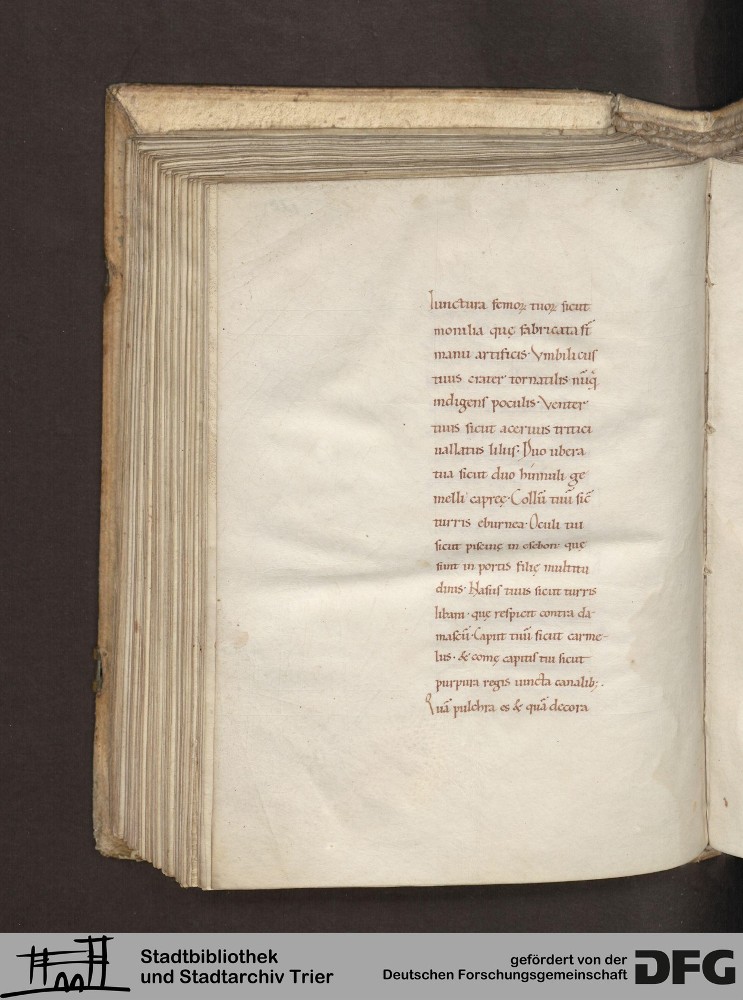 Iunctura femoꝝ tuoꝝ sicut
monilia quę fabricata st̄
manu artificis· Vmbilicus
tuus crater tornatilis nūq̄
indigens poculis· Venter
tuus sicut aceruus tritici
uallatus liliis· Duo ubera
tua sicut duo hinnuli ge
melli capreę· Collū tuū sic̄
turris eburnea· Oculi tui
sicut piscinę in esebon· quę
sunt in portis filię multitu
dinis· Nasus tuus sicut turris
libani· quę respicit contra da
mascū· Caput tuū sicut carme-
lus· & comę capitis tui sicut
purpura regis uincta canalib;·
Quā pulchra es & quā decora
Stadtbibliothek
und Stadtarchiv Trier
gefördert von der
Deutschen Forschungsgemeinschaft
DFG